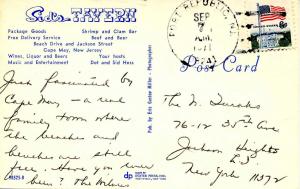 Sid's TAVERN
Package Goods Shrimp and Clam Bar
Free Delivery Beef and Beer
Beach Drive and Jackson Street
Cape May, New Jersey
Wines, Liquors and Beer Your hosts
Music and Entertainment Dot and Sid Hess
Pub. by Eric Gustav Miller - Photographer
Post Card
PORT REPUBLIC, N.J.
SEP
AM
1971
Just fascinated by
Cape May - a real
family town where
the beaches and
beaches are still
free. Have you ever
been? The
The M.
76-12 35th Ave
Jackson Heights
L.I.
New York 11372
dp